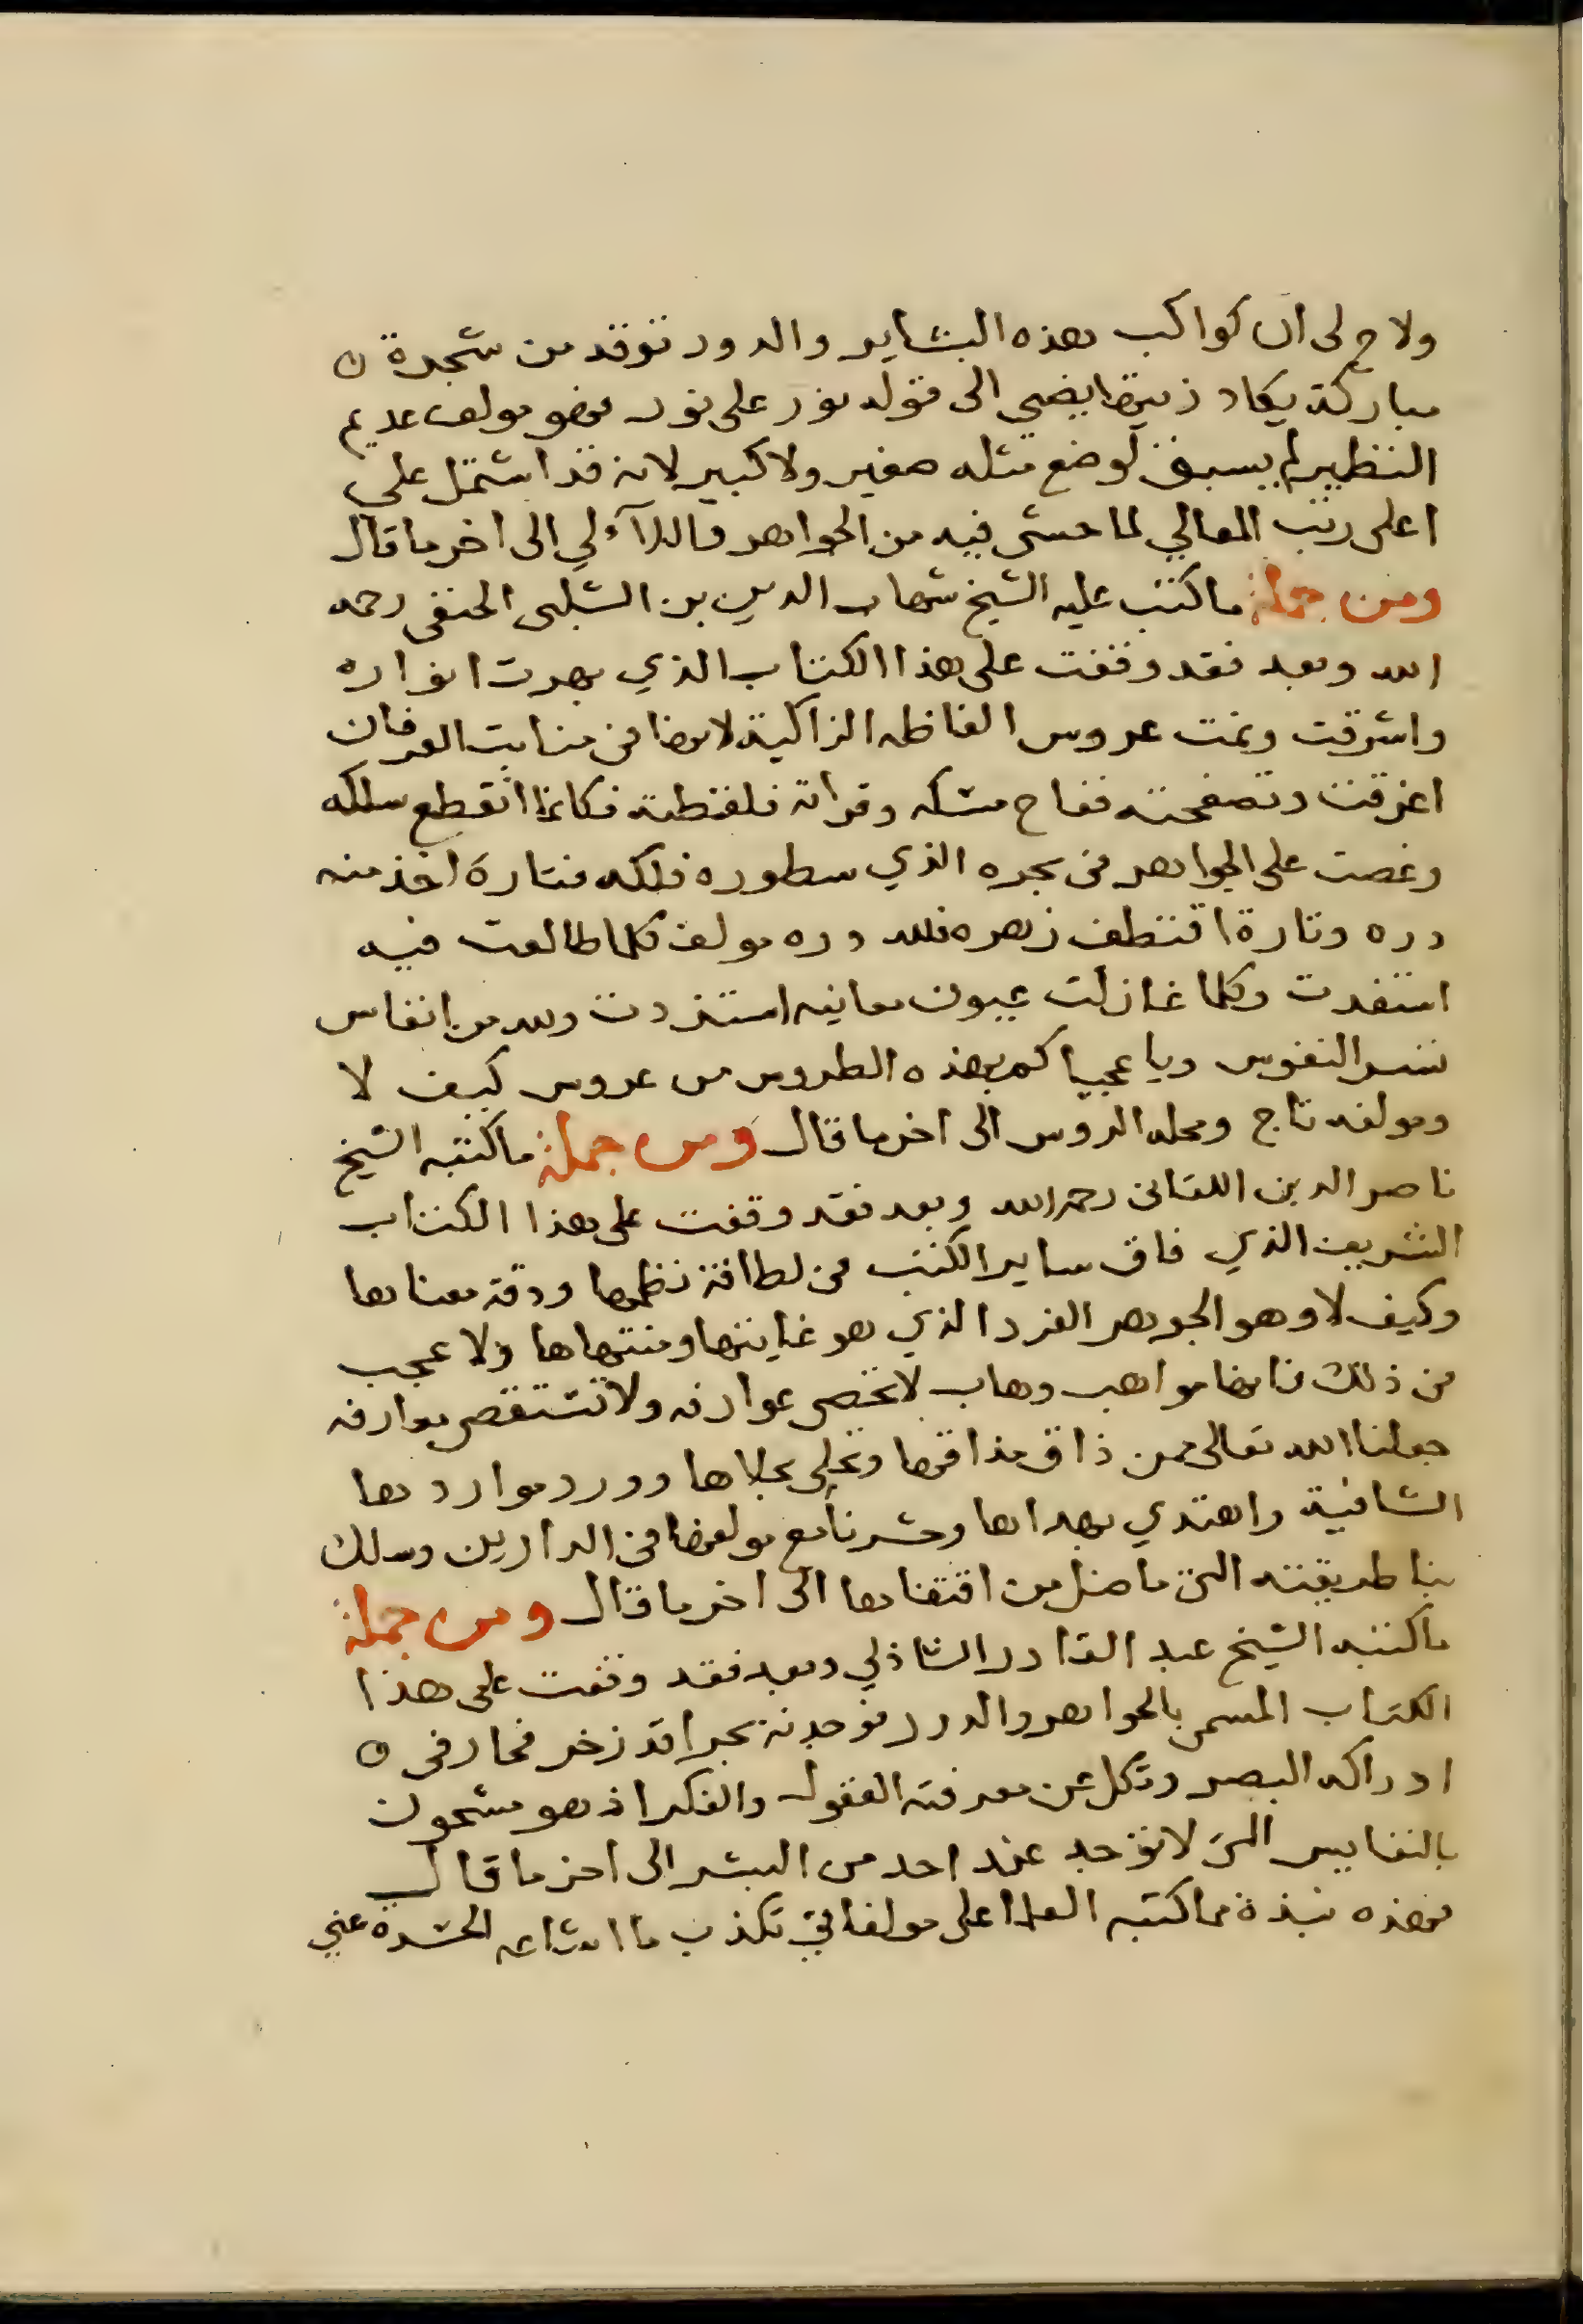 ولاح لى ان كواكب هذه البشاير والدور توقد من شجرة
مباركة يكاد زيتها يضى الى قوله نور على نور فهو مولف عديم
النظير لم يسبق لوضع مثله صغير ولا كبير لانه قد اشتمل على
اعلى رتب المعالي لما حشى فيه من الجواهر واللآءلي الى اخر ما قال
ومن جملة ما كتب عليه الشيخ شهاب الدين بن الشلبى الحنفى رحمه
الله وبعد فقد وقفت على هذا الكتاب الذي بهرت انواره
واشرقت ونمت عروس الفاظه الزاكية لانها فى منابت العرفان
اعرقت وتصفحته ففاح مسكه وقراته فلفظته فكانما انقطع سلكه
وغصت على الجواهر فى بحره الذي سطوره فلكه فتارة اخذ منه
دره وتارة اقتطف زهره فلله دره مولف كلما طالعت فيه
استفدت وكلما غازلت عيون معانيه استزدت ولله من انفاس
تسر النفوس ويا عجبا كم بهذه الطروس من عروس كيف لا
ومولفه تاج ومحله الروس الى اخر ما قال ومن جملة ما كتبه الشيخ
ناصر الدين اللقانى رحمه الله وبعد فقد وقفت على هذا الكتاب
الشريف الذي فاق ساير الكتب فى لطافة نظمها ودقة معناها
وكيف لا وهو الجوهر الفرد الذي هو غايتها ومنتهاها ولا عجب
من ذلك فانها مواهب وهاب لا تحصى عوارفه ولا تستقصى معارفه
جعلنا الله تعالى ممن ذاق مذاقها وتحلى بحلاها وورد مواردها
الشافية واهتدي بهداها وحشرنا مع مولفها فى الدارين وسلك
بنا طريقته التى ما ضل من اقتفاها الى اخر ما قال ومن جملة
ما كتبه الشيخ عبد القادر الشاذلي وبعد فقد وقفت على هذا
الكتاب المسمى بالجواهر والدرر فوجدته بحرا قد زخر فحار فى
ادراكه البصر وتكل عن معرفته العقول والفكر اذ هو مشحون
بالنفايس التى لا توجد عند احد من البشر الى اخر ما قال
فهذه نبذة مما كتبه العلما على مولفاتي تكذب ما اشاعه الحسدة عني